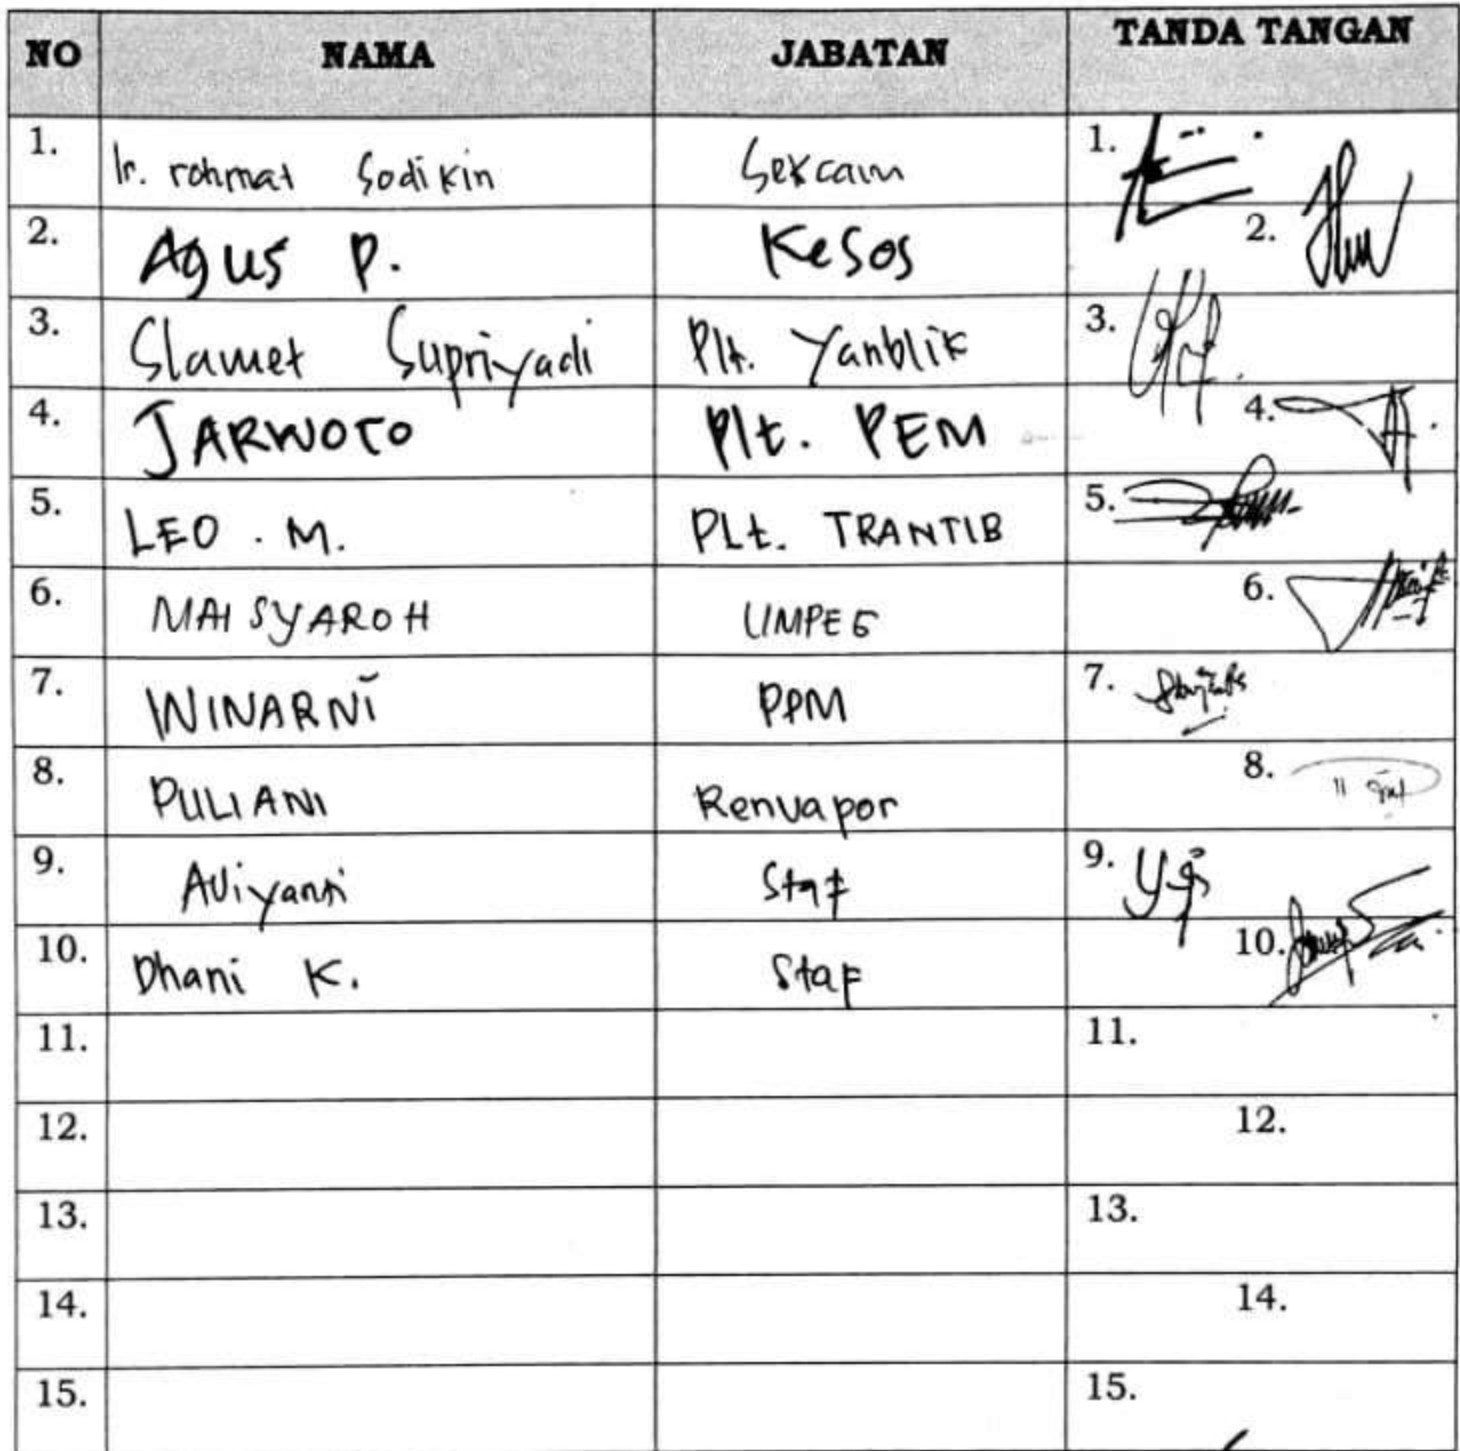 NO NAMA JABATAN TANDA TANGAN
1. Ir. rohmat Sodikin Sekcam 1.
2. Agus P. Kesos 2.
3. Slamet Supriyadi Plt. Yanblik 3.
4. JARWOTO Plt. PEM 4.
5. LEO . M. PLt. TRANTIB 5.
6. MAISYAROH UMPEG 6.
7. WINARNI PPM 7.
8. PULIANI Renvapor 8.
9. Aviyanti Staf 9.
10. Dhani K. Staf 10.
11. 11.
12. 12.
13. 13.
14. 14.
15. 15.